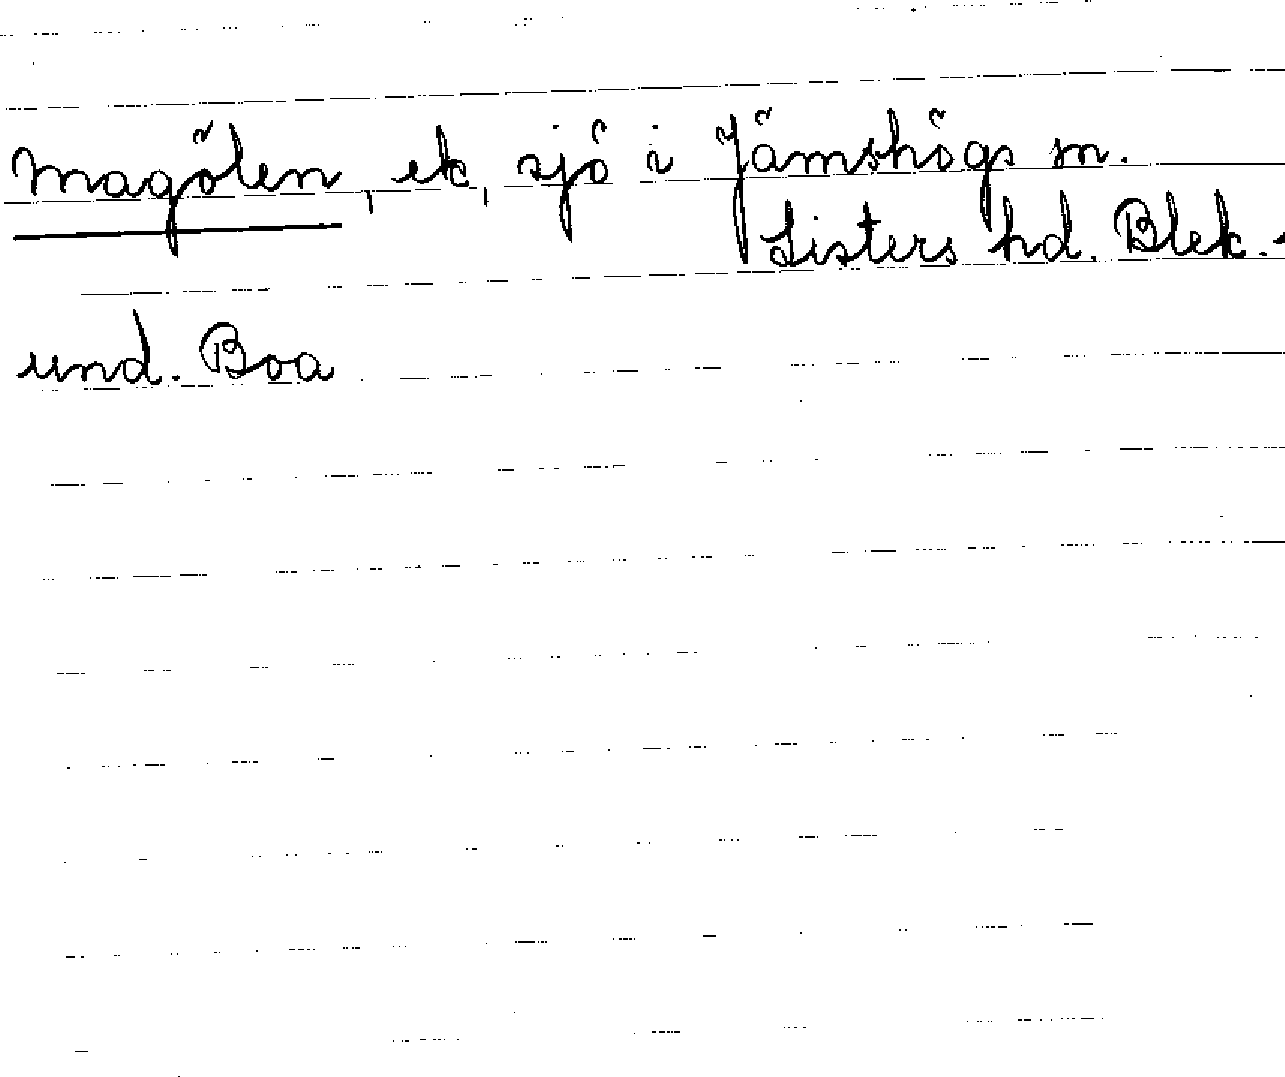 Magölen, ek, sjö i Jämshögs sn.
Listers hd. Blek.
und. Boa